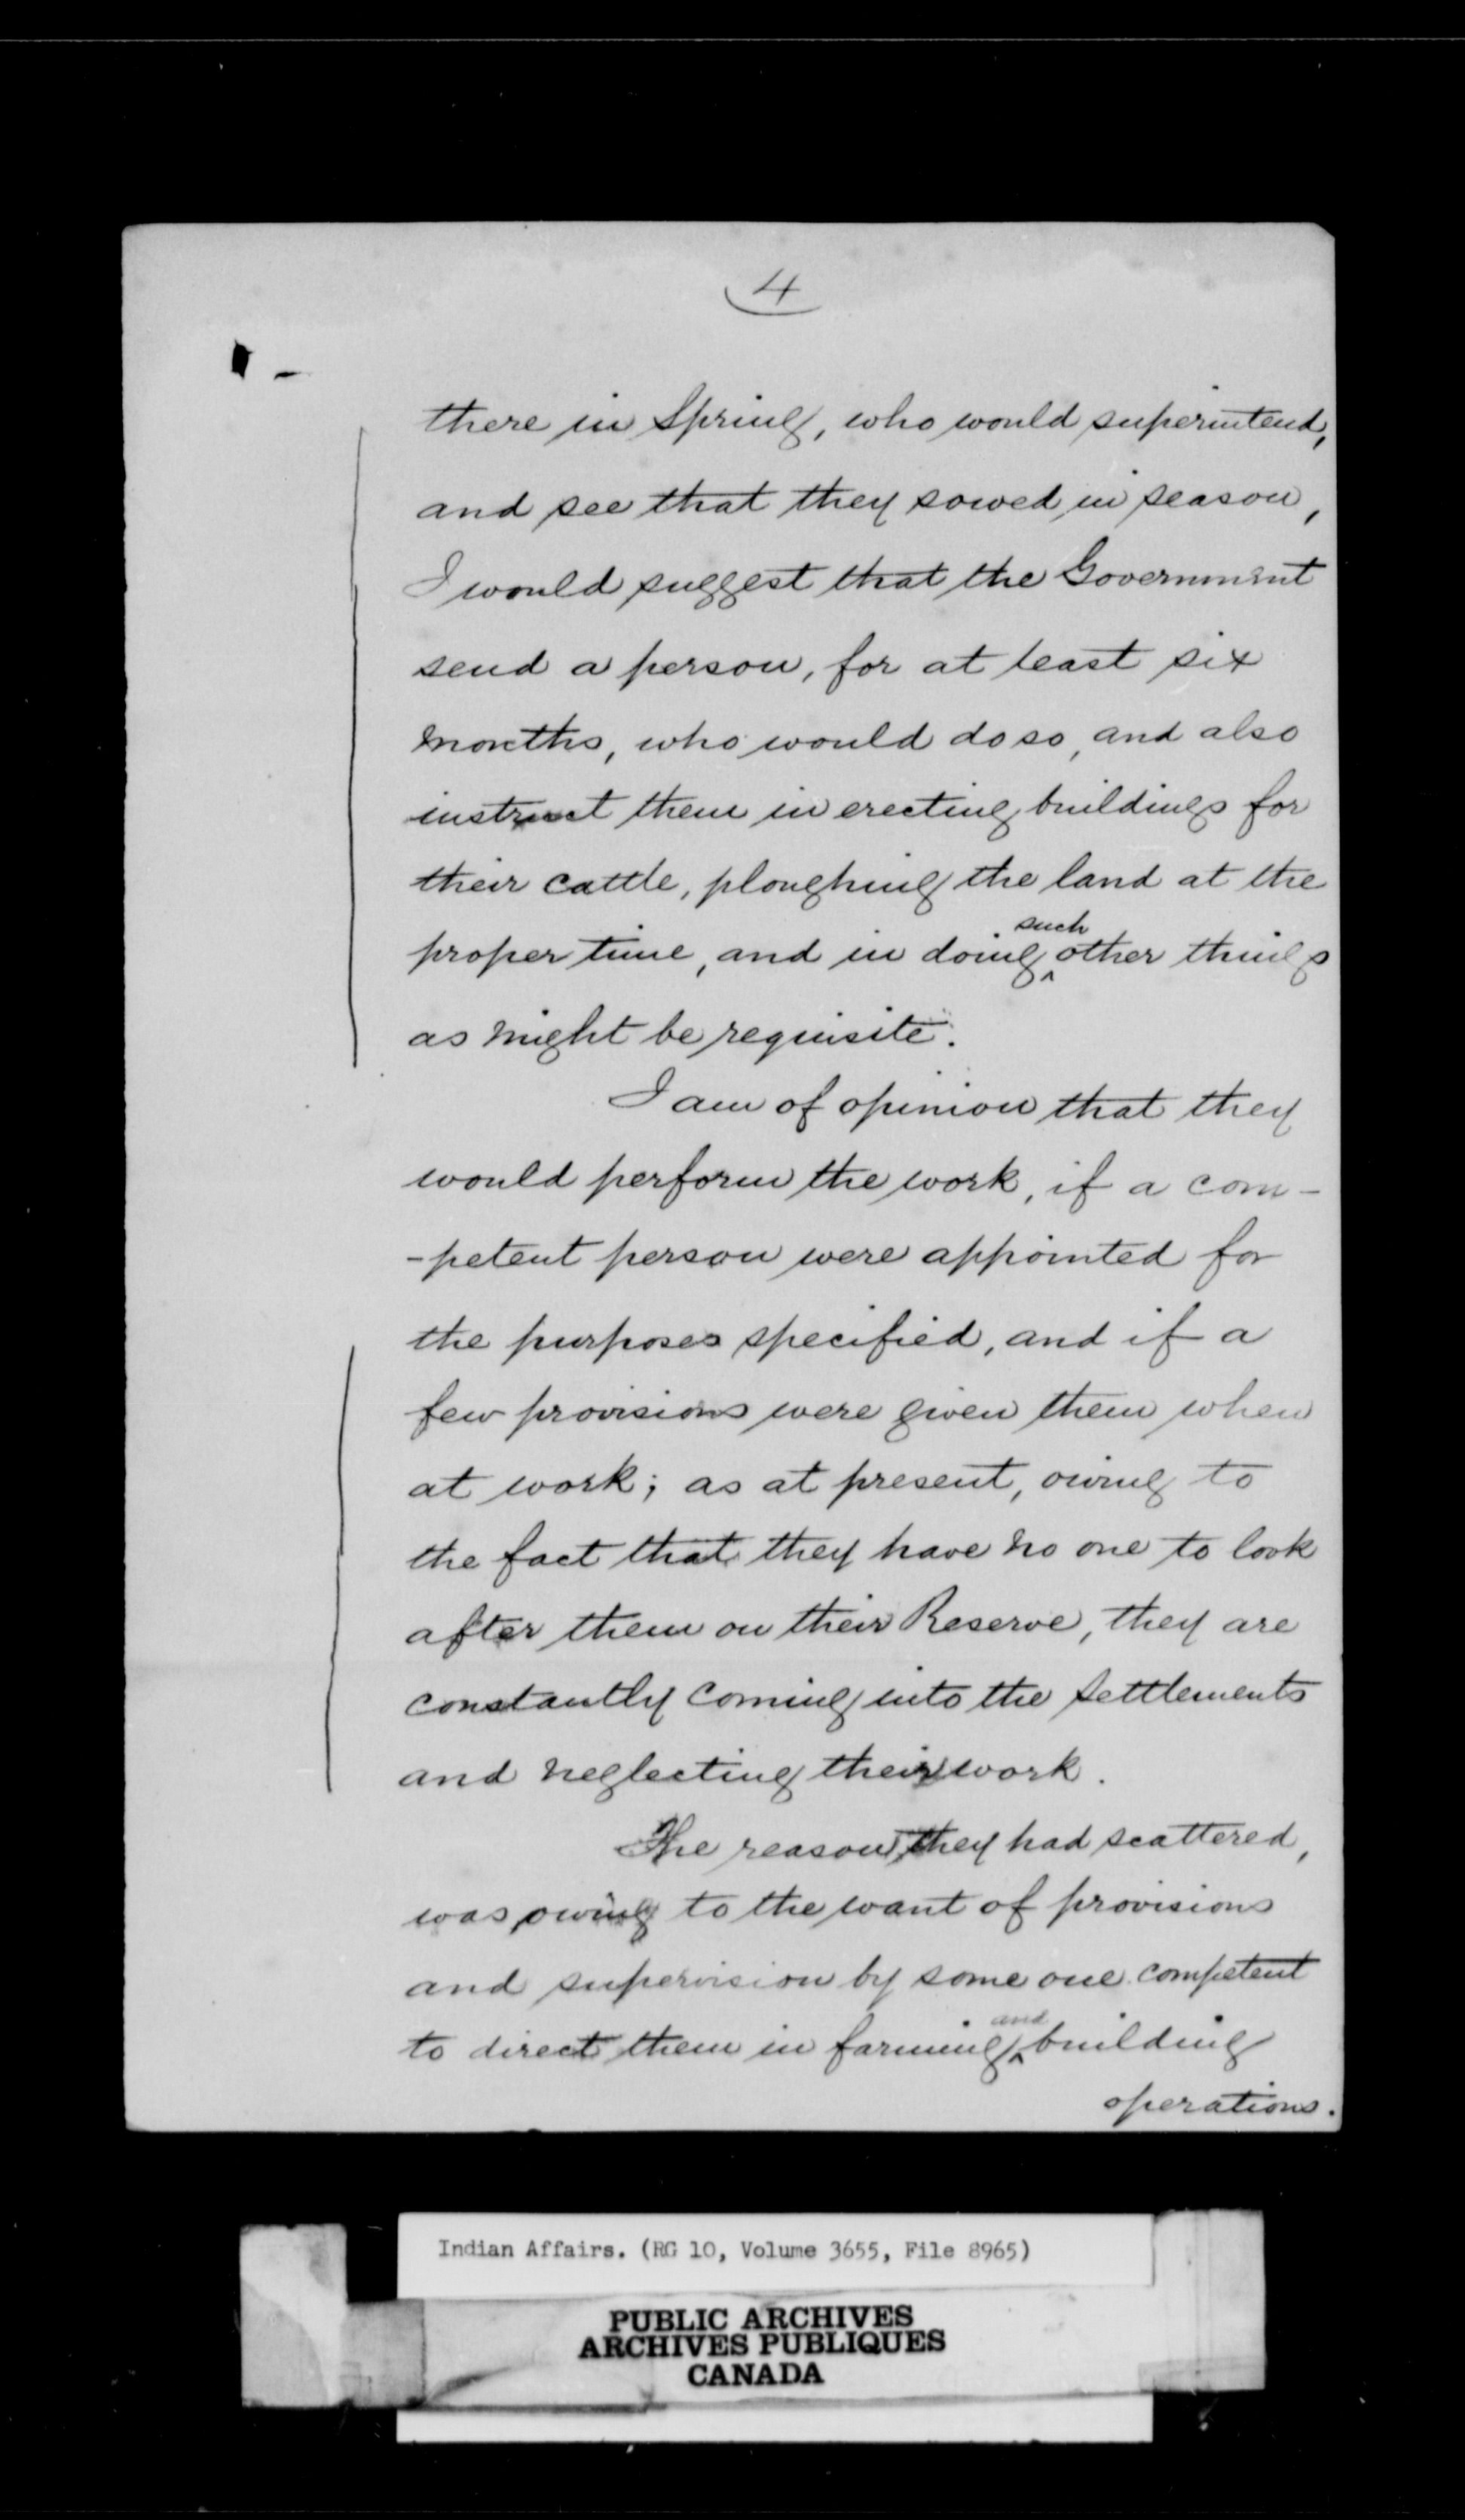 4
there in Spring, who would superintend,
and see that they sowed in season,
I would suggest that the Government
send a person, for at least six
months, who would do so, and also
instruct them in erecting buildings for
their cattle, ploughing the land at the
proper time, and in doing such other things
as might be requisite.
I am of opinion that they
would perform the work, if a com-
-petent person were appointed for
the purposes specified, and if a
few provisions were given them when
at work; as at present, owing to
the fact that they have no one to look
after them on their Reserve, they are
constantly coming into the settlements
and neglecting their work.
The reason they had scattered,
was owing to the want of provisions
and supervision by some one competent
to direct them in farming and building
operations.
Indian Affairs. (RG 10, Volume 3655, File 8965)
PUBLIC ARCHIVES
ARCHIVES PUBLIQUES
CANADA